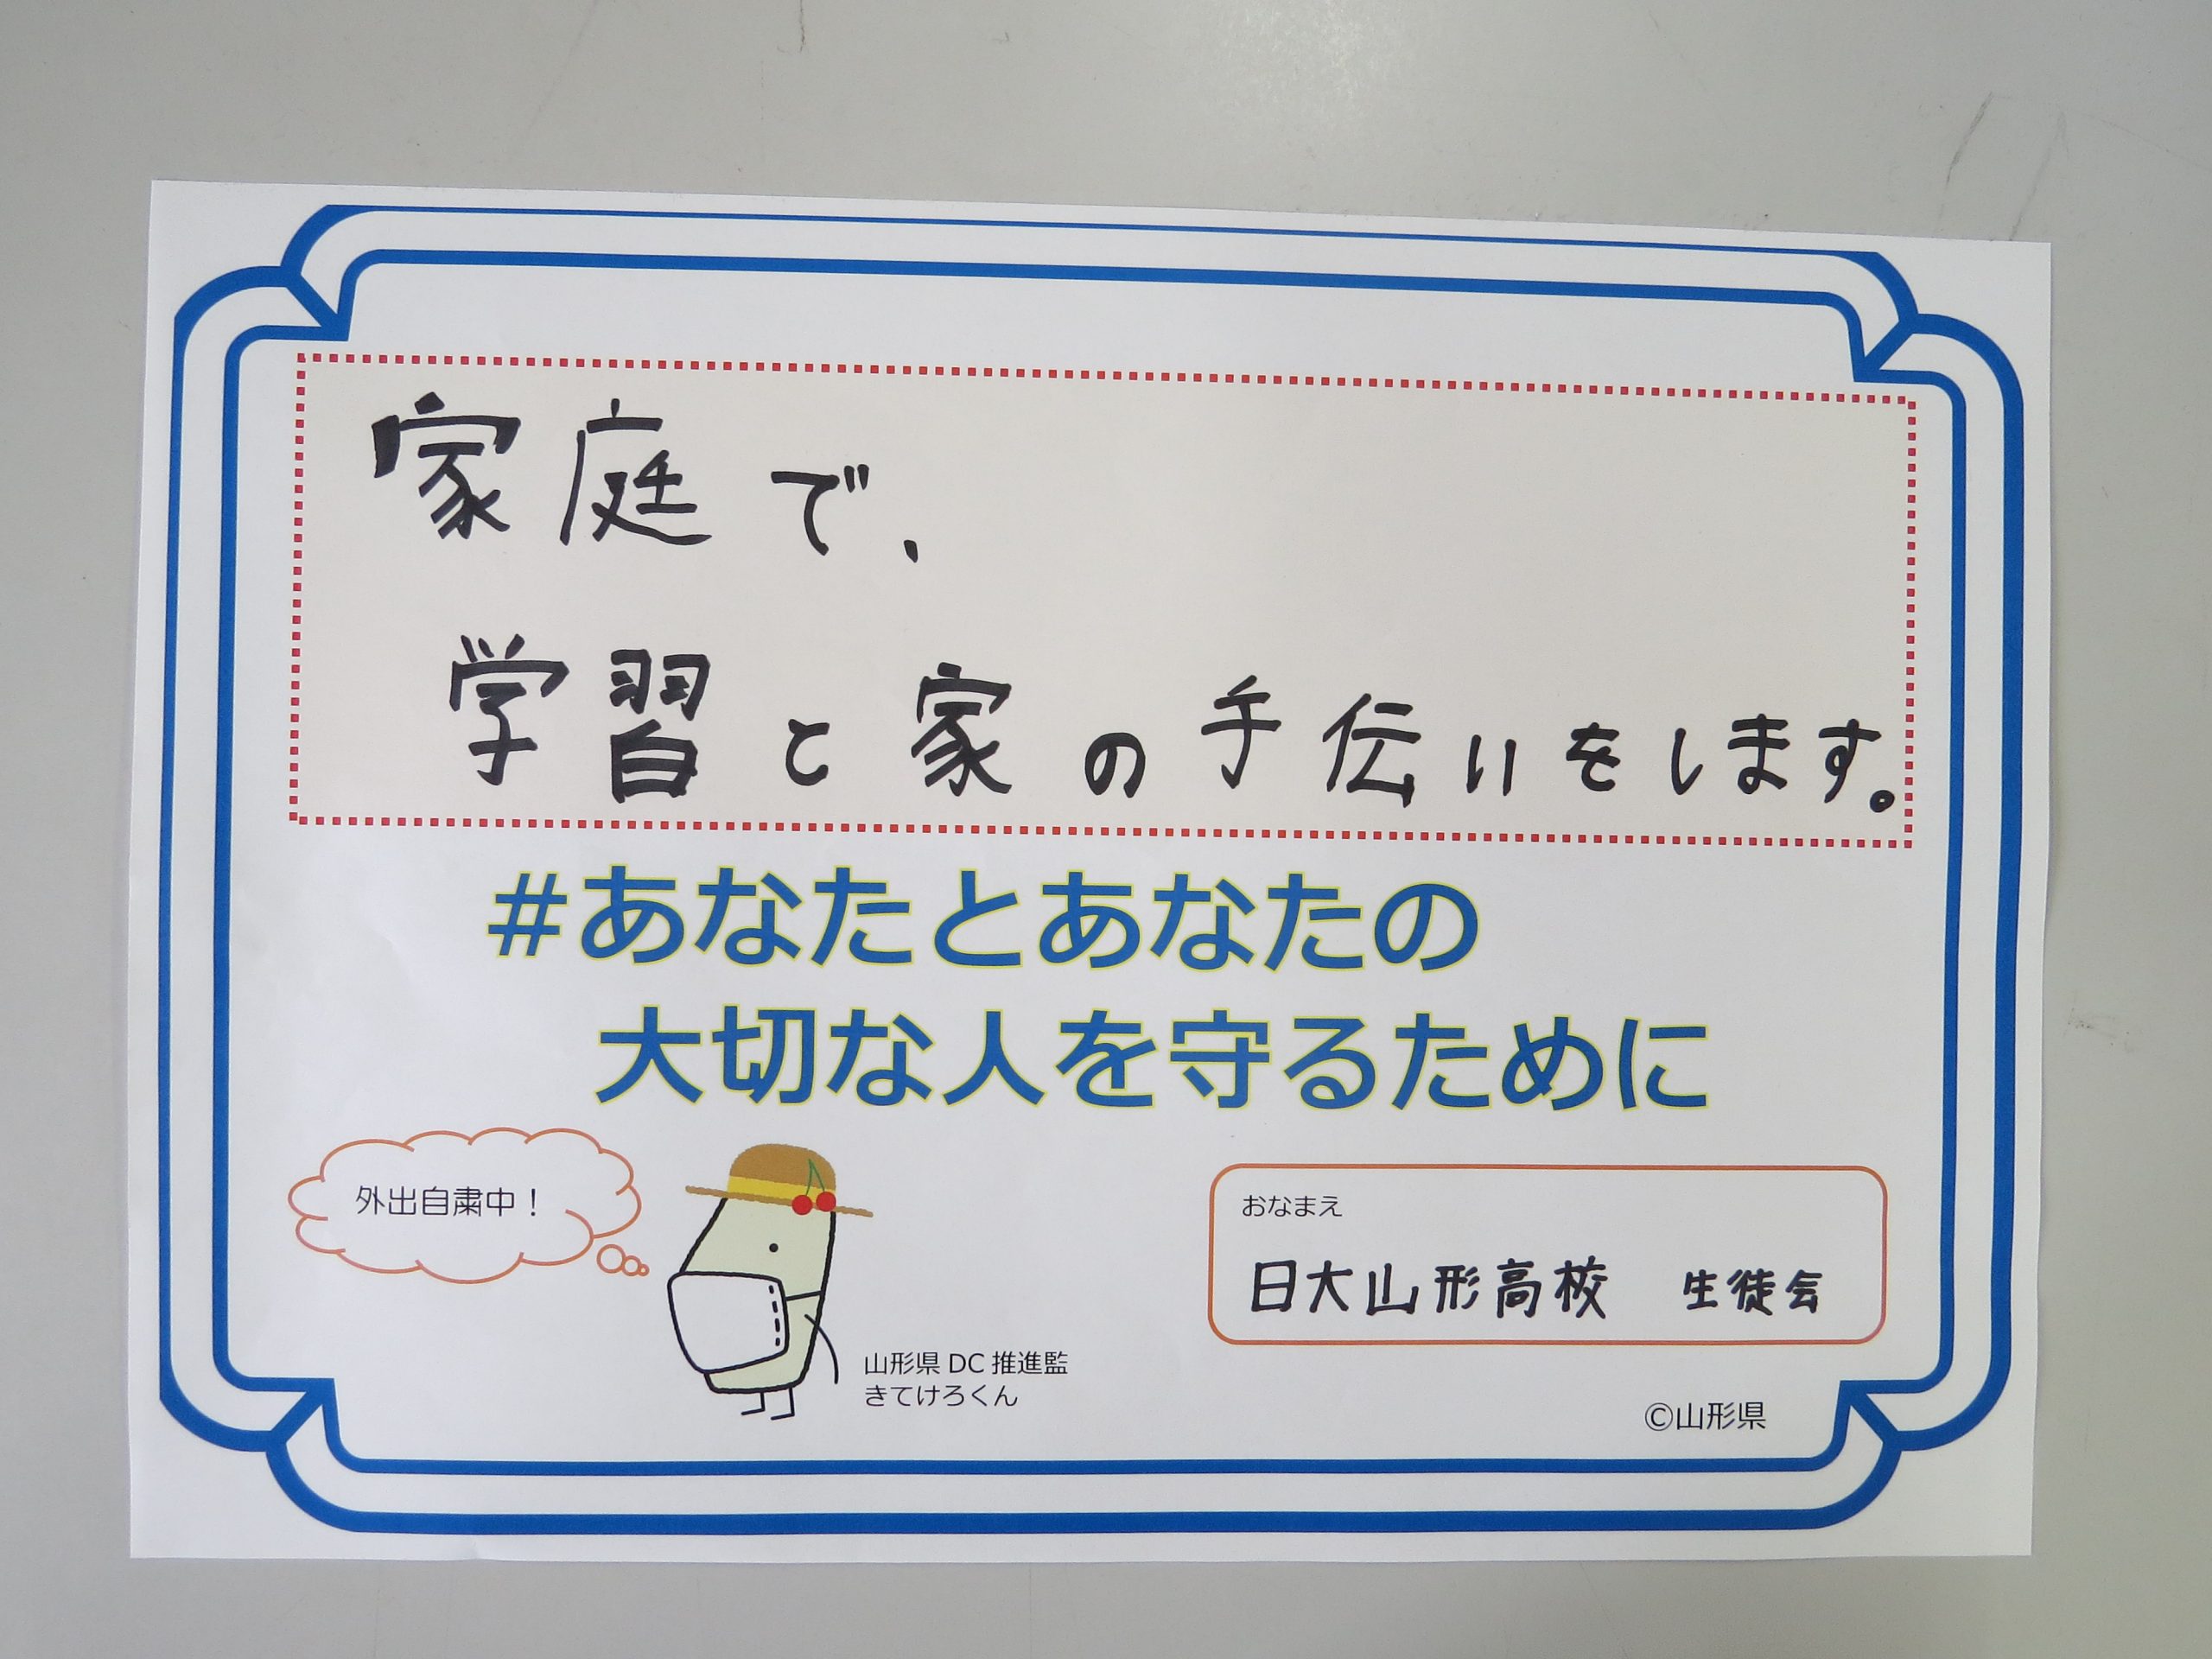 家庭で、
学習と家の手伝いをします。
#あなたとあなたの
大切な人を守るために
外出自粛中！
おなまえ
日大山形高校 生徒会
山形県 DC 推進監
きてけろくん
©山形県